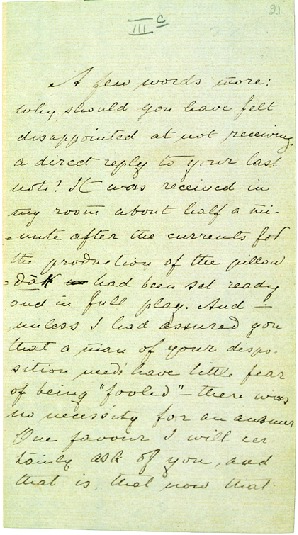 III C
A few words more:
why should you have felt
disappointed at not receiving
a direct reply to your last
note? It was received in
my room about half a mi-
nute after the currents for
the production of the pillow
dâk had been set ready
and in full play. And —
unless I had assured you
that a man of your dispo-
sition need have little fear
of being "fooled" — there was
no necessity for an answer
One favour I will cer
tainly ask of you, and
that is that now that